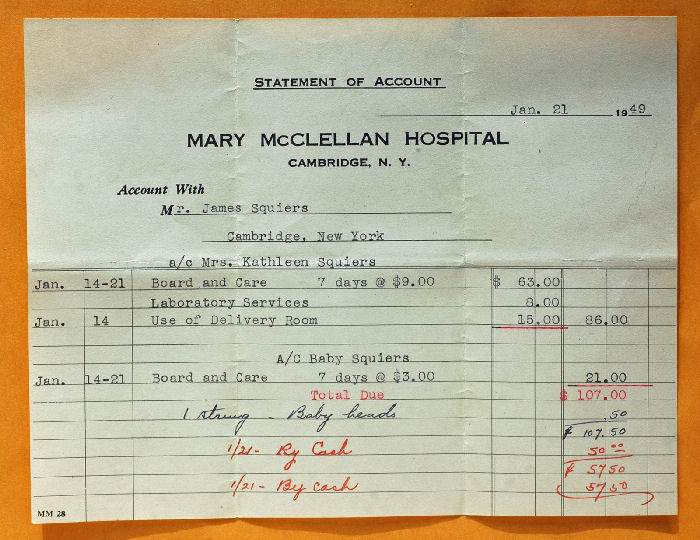 STATEMENT OF ACCOUNT
Jan. 21 1949
MARY McCLELLAN HOSPITAL
CAMBRIDGE, N. Y.
Account With
Mr. James Squiers
Cambridge, New York
a/c Mrs. Kathleen Squiers
Jan. 14-21 Board and Care 7 days @ $9.00 $ 63.00
Laboratory Services 8.00
Jan. 14 Use of Delivery Room 15.00 86.00
A/C Baby Squiers
Jan. 14-21 Board and Care 7 days @ $3.00 21.00
Total Due $ 107.00
1 string - Baby beads .50
$ 107.50
1/21- By Cash 50.00
$ 57.50
1/21- By cash 57.50
MM 28